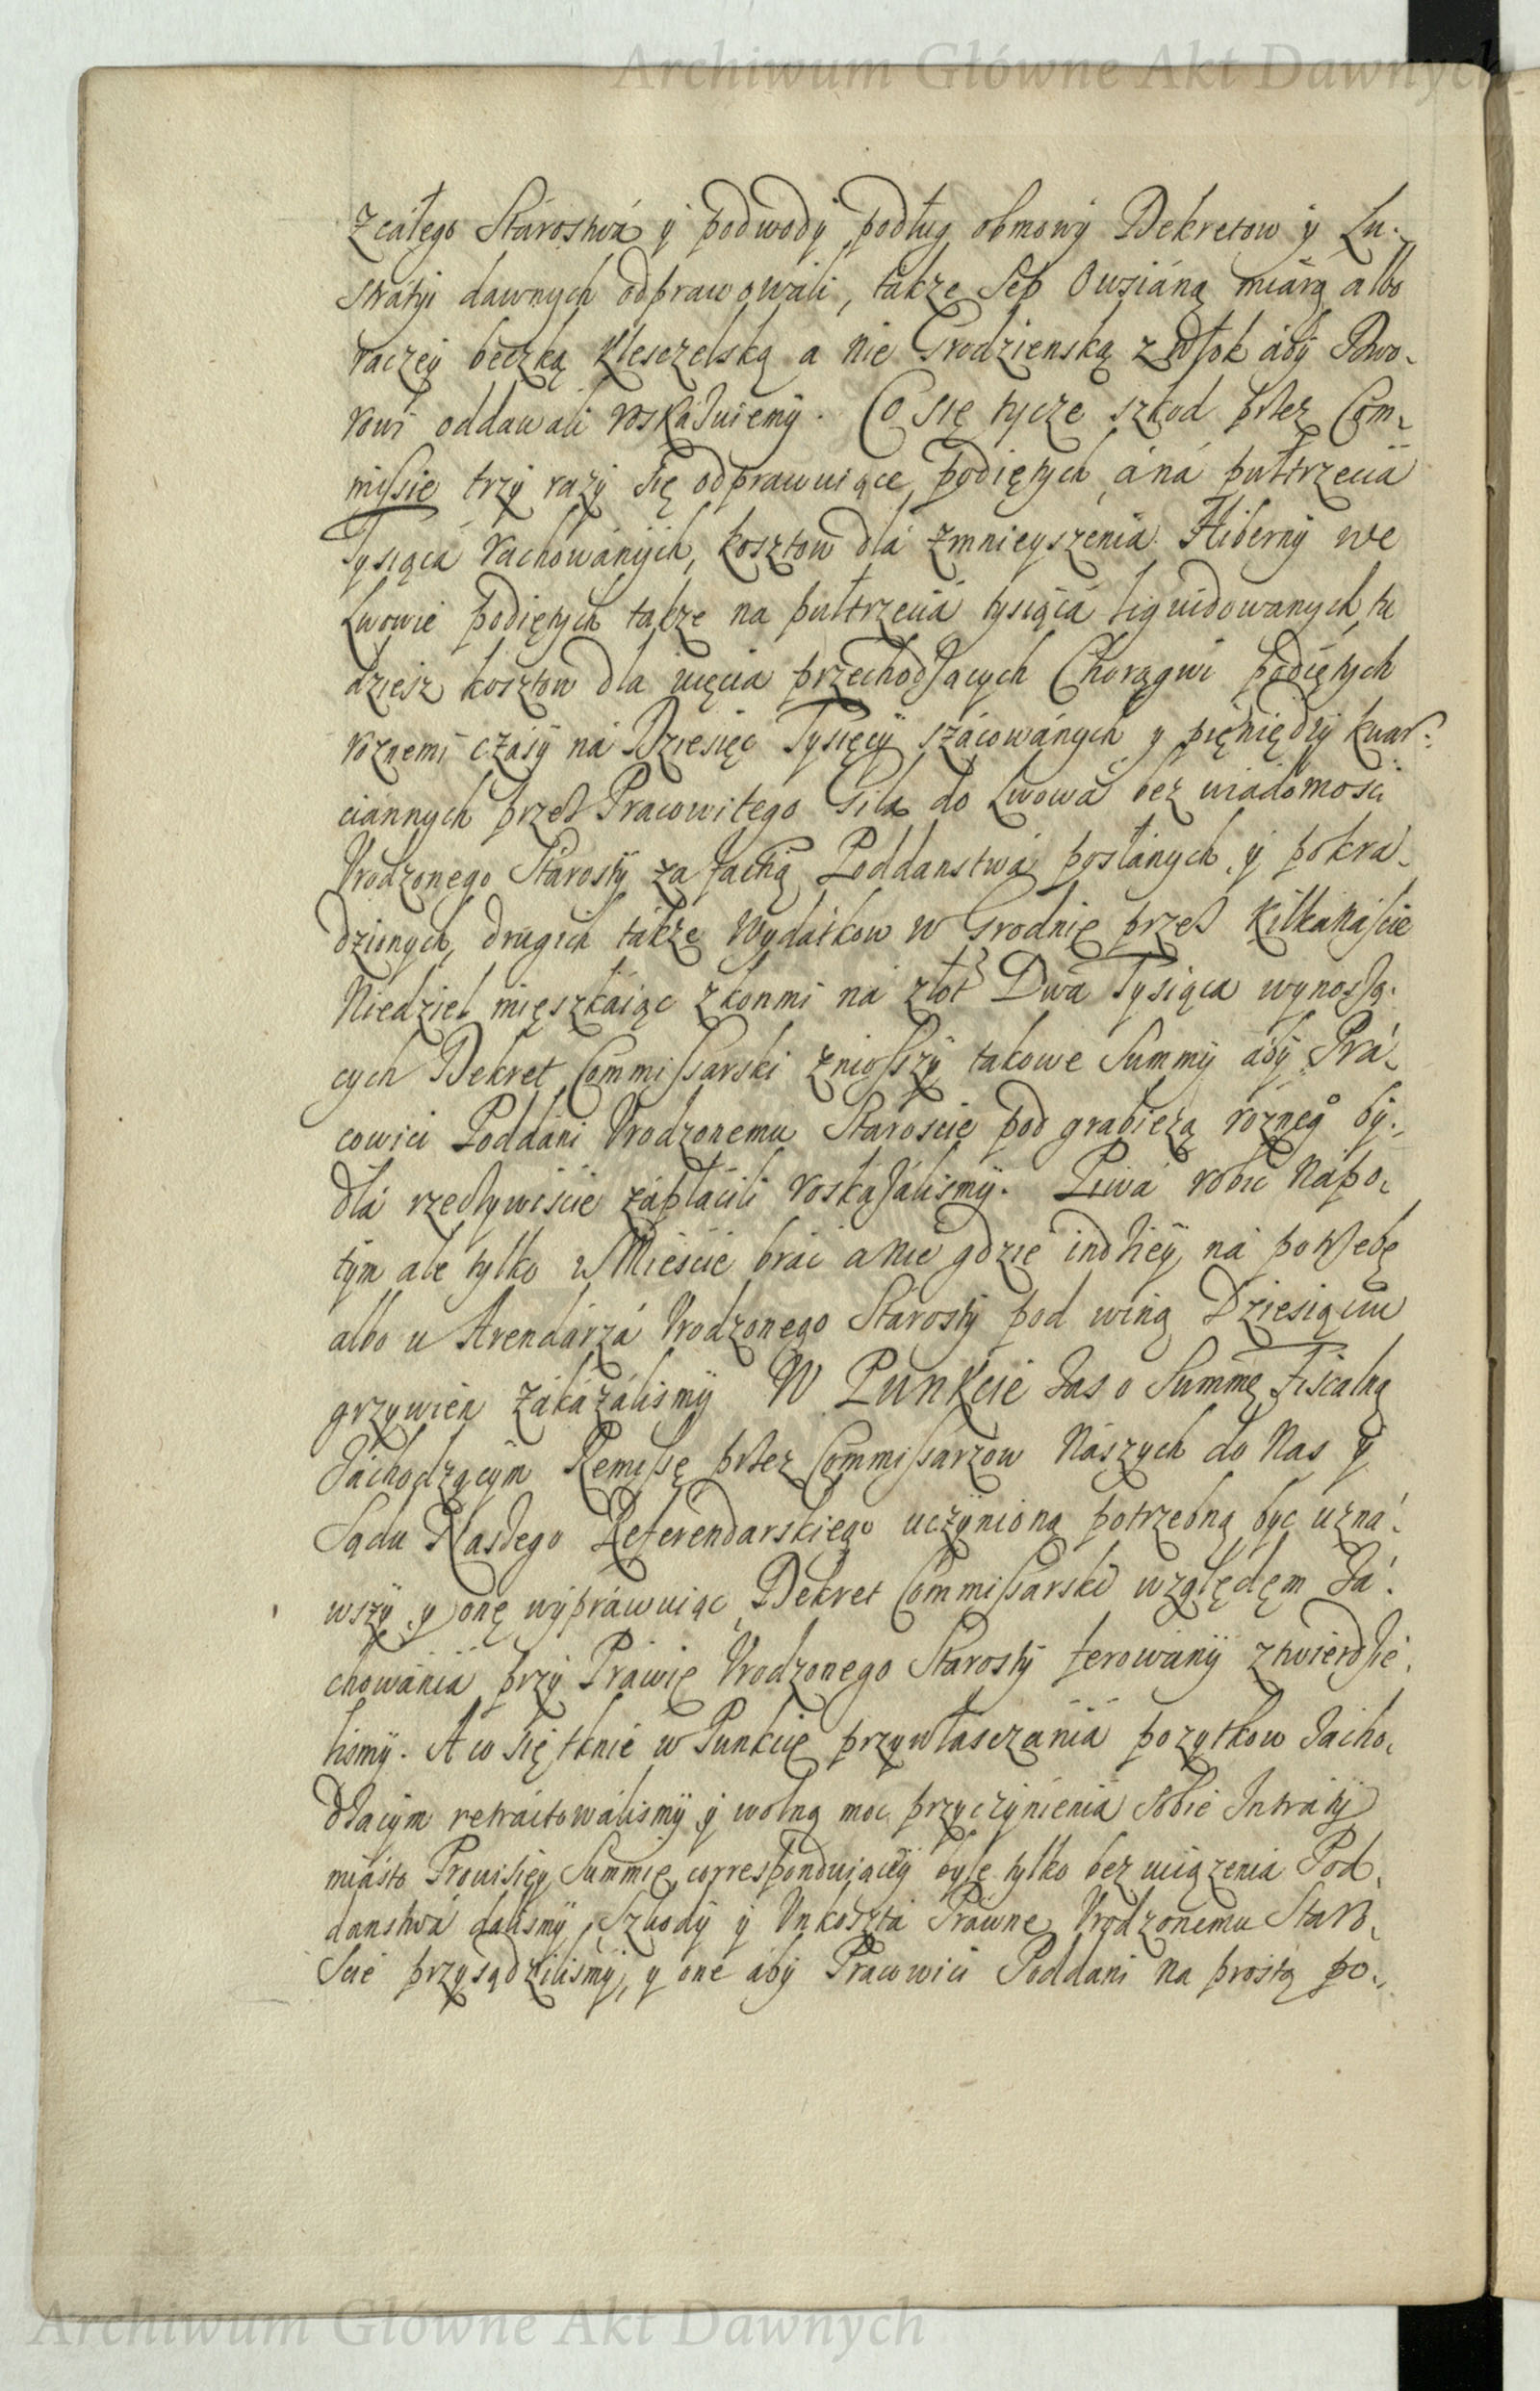 Archiwum Główne Akt Dawnych
Zcáłego Stárostwá ÿ podwodÿ podług obmowÿ Dekretow ÿ Lu-
stratÿi dawnych odprawowáli, także Sep Owsiáną miárą albo
raczeÿ beczką Klesczelską a nie Grodzienską z Włok ábÿ Dwo-
rowi oddawali roskázuiemÿ. Co się tycze szkod przez Com-
missie trzÿ razÿ się odprawuiące podiętych, á ná pułtrzeciá
Tysiącá ráchowánÿch, kosztow dlá zmnieÿszenia Hibernÿ we
Lwowie podiętych także na pułtrzeciá tysiącá liquidowanych, tu
dziesz kosztow dla uięcia przechodzących Chorągwi podiętych
roznemi czásÿ ná Dziesięc Tysięcÿ szácowánych y pięniędzÿ kwar-
ciánnych przez Pracowitego Gila do Lwowá bez wiadomosci
Vrodzonego Stárostÿ za factią Poddanstwá posłánych, ÿ pokra-
dzionych, drugich tákże Wydátkow w Grodnie przez kilkanáscie
Niedziel mięszkáiąc zkonmi ná złot Dwá Tysiąca wynoszą-
cych Dekret Commissarski zniosszÿ takowe Summÿ ábÿ Prá-
cowici Poddáni Vrodzonemu Staroscie pod grabieżą rozneg° bÿ-
dłá rzeczÿwiscie zápłácili roskazálismÿ. Piwá robic nápo-
tÿm ale tylko w Miescie brác á nie gdzie indzieÿ, ná potrzebę
albo u Arendárzá Vrodzonego Stárostÿ pod winą Dziesiąciu
grzywien zákázálismÿ W Punkcie zas o Summę Fiscalną
záchodzącÿm Remissę przez Commissarzow Nászych do Nas ÿ
Sądu Naszego Referendarskiego uczÿnioną potrzebną byc uzná-
wszÿ y onę wÿpráwuiąc Dekret Commissarski względem zá-
chowániá przÿ Práwie Vrodzonego Starostÿ ferowánÿ ztwierdzi-
lismÿ. A co się tknie w Punkcie przywłasczániá pozytkow zacho-
dzacÿm retractowálismÿ ÿ wolną moc przÿczÿnieniá sobie Intratÿ
miásto Prowisieÿ Summie correspondująceÿ byle tylko bez uciązenia Pod-
danstwá dalismÿ, Szkodÿ ÿ Unkosztá Práwne Vrodzonemu Staro-
scie przysądzilismÿ, y one ábÿ Pracowici Poddani na prostą po-
Archiwum Główne Akt Dawnych